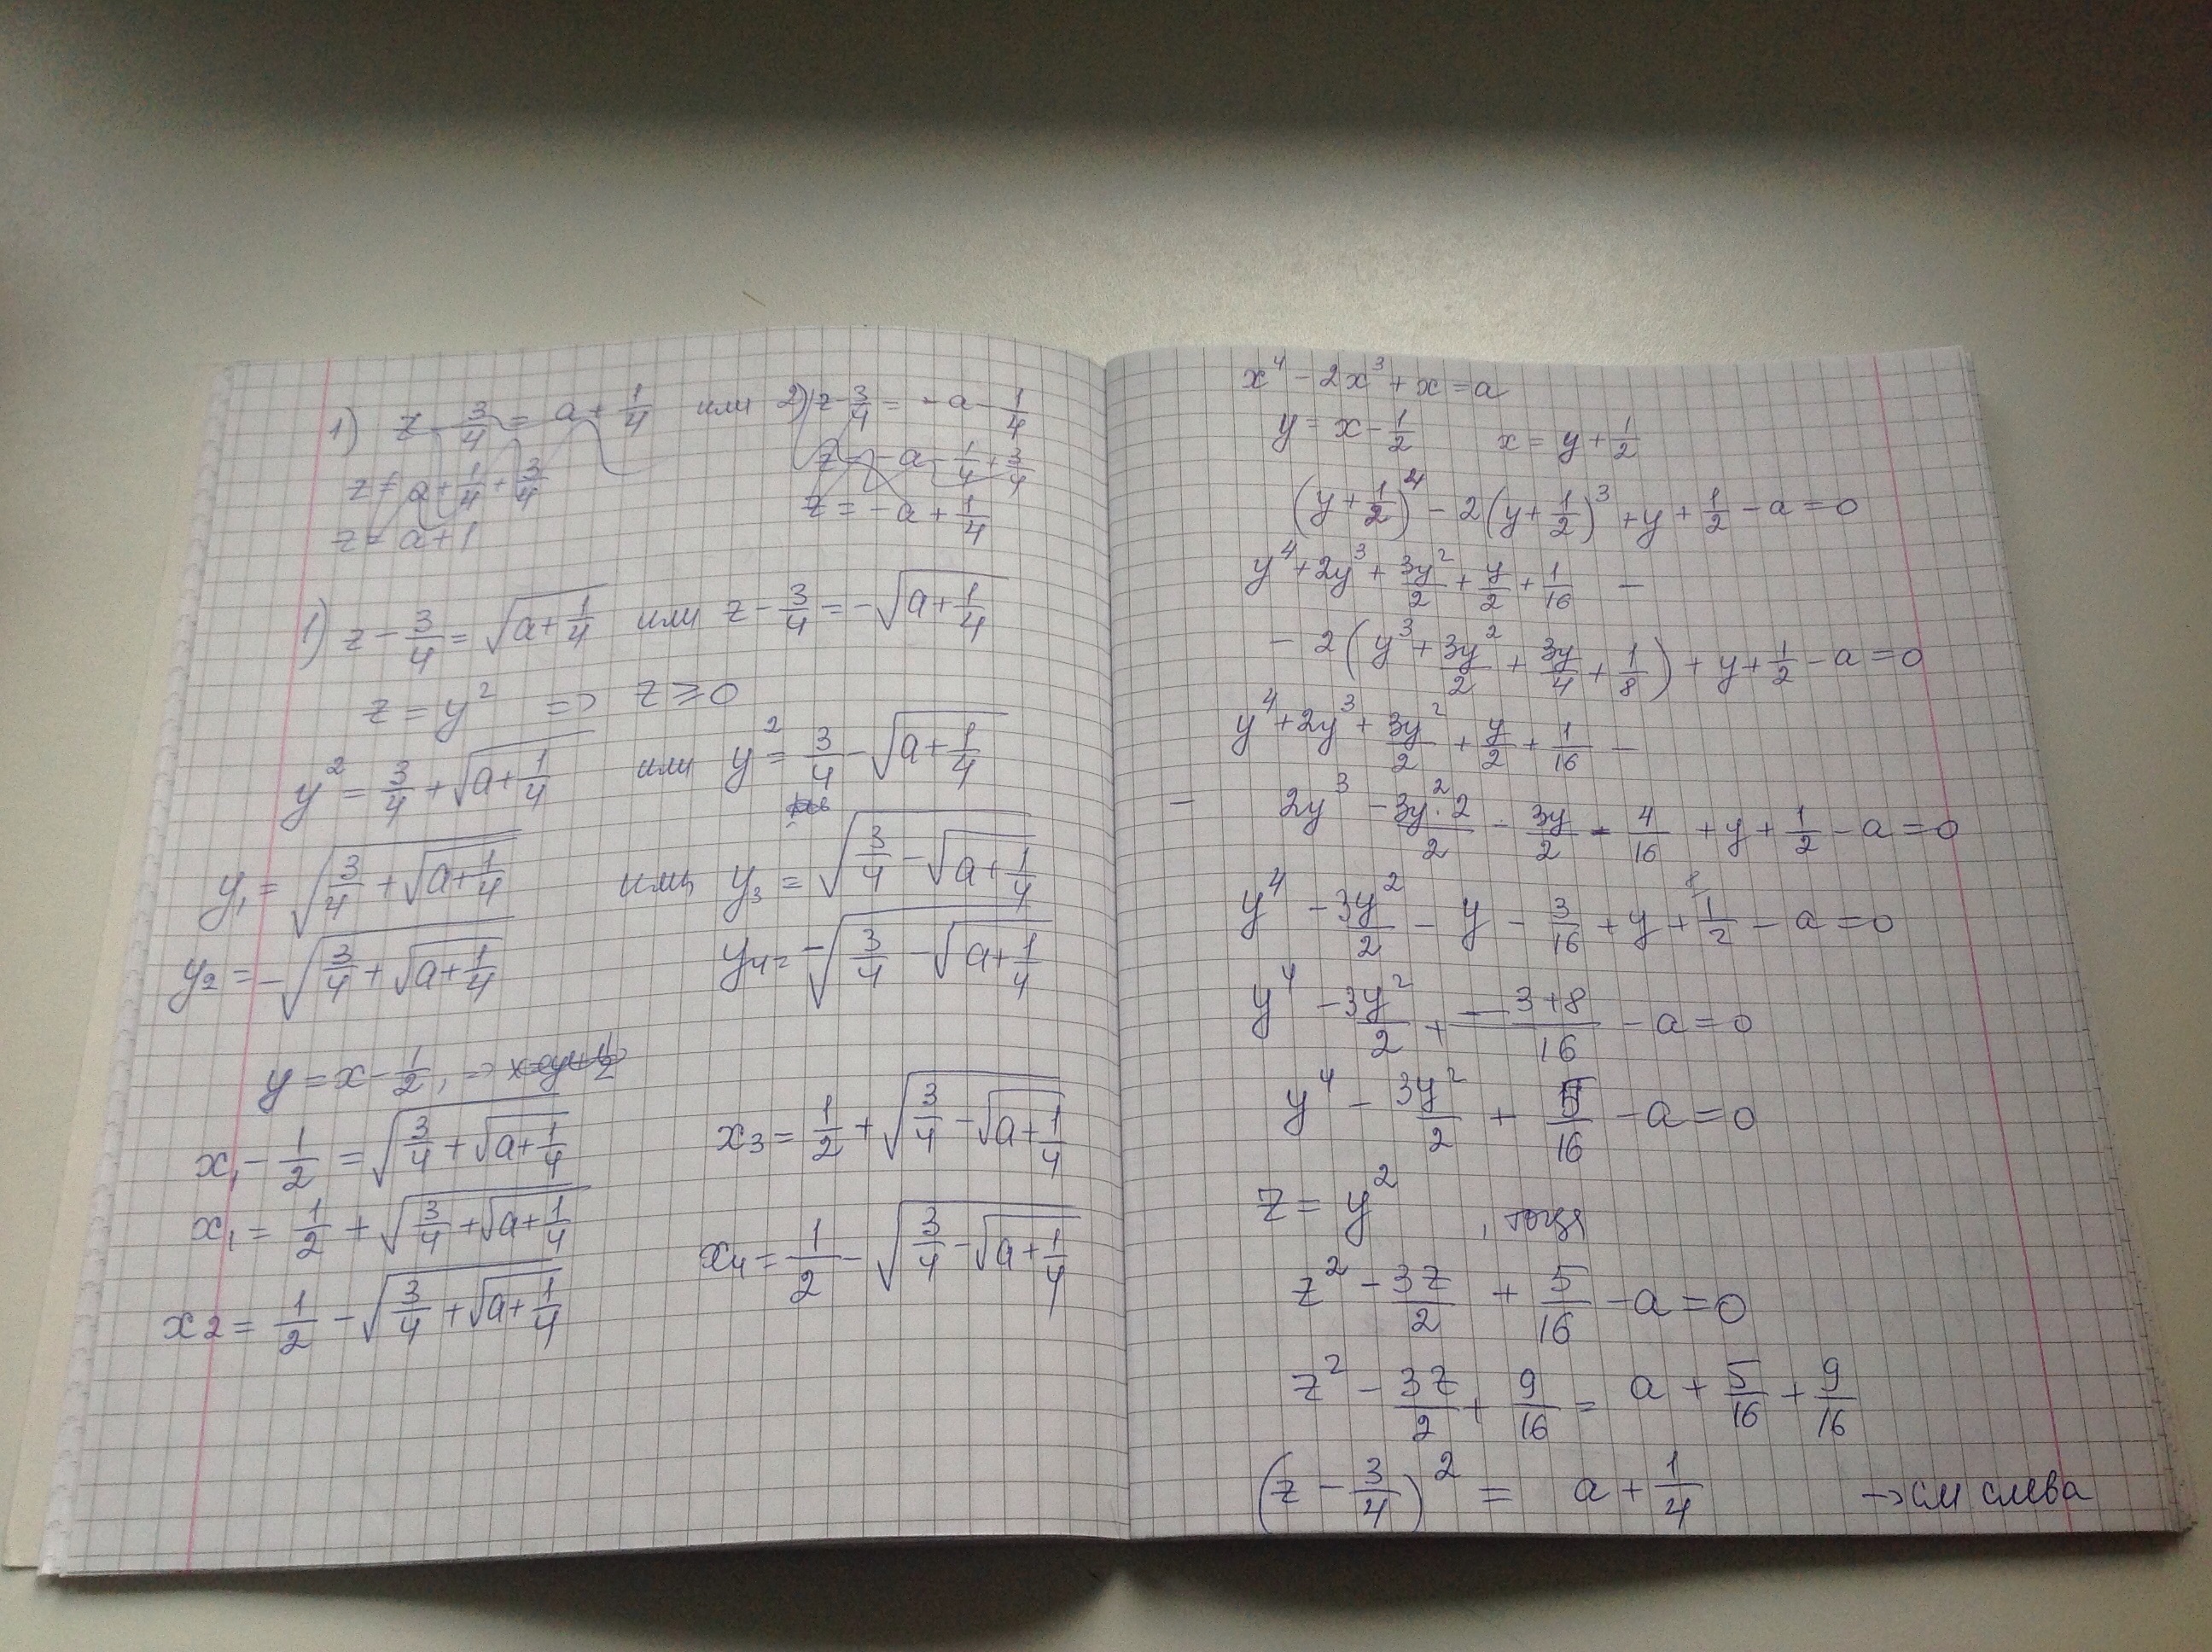 1) z - 3/4 = a + 1/4 или 2) z - 3/4 = -a - 1/4
z = a + 1/4 + 3/4 z = -a - 1/4 + 3/4
z = a + 1 z = -a + 1/4
1) z - 3/4 = √(a + 1/4) или z - 3/4 = -√(a + 1/4)
z = y² => z ⩾ 0
y² = 3/4 + √(a + 1/4) или y² = 3/4 - √(a + 1/4)
y₁ = √(3/4 + √(a + 1/4)) или y₃ = √(3/4 - √(a + 1/4))
y₂ = -√(3/4 + √(a + 1/4)) y₄ = -√(3/4 - √(a + 1/4))
y = x - 1/2, => x = y + 1/2
x₁ - 1/2 = √(3/4 + √(a + 1/4)) x₃ = 1/2 + √(3/4 - √(a + 1/4))
x₁ = 1/2 + √(3/4 + √(a + 1/4)) x₄ = 1/2 - √(3/4 - √(a + 1/4))
x₂ = 1/2 - √(3/4 + √(a + 1/4))
x⁴ - 2x³ + x = a
y = x - 1/2 x = y + 1/2
(y + 1/2)⁴ - 2(y + 1/2)³ + y + 1/2 - a = 0
y⁴ + 2y³ + 3y²/2 + y/2 + 1/16 -
- 2(y³ + 3y²/2 + 3y/4 + 1/8) + y + 1/2 - a = 0
y⁴ + 2y³ + 3y²/2 + y/2 + 1/16 -
- 2y³ - 3y²·2/2 - 3y/2 - 4/16 + y + 1/2 - a = 0
y⁴ - 3y²/2 - y - 3/16 + y + 1/2 - a = 0
y⁴ - 3y²/2 + (-3+8)/16 - a = 0
y⁴ - 3y²/2 + 5/16 - a = 0
z = y² , тогда
z² - 3z/2 + 5/16 - a = 0
z² - 3z/2 + 9/16 = a + 5/16 + 9/16
(z - 3/4)² = a + 1/4 → см слева